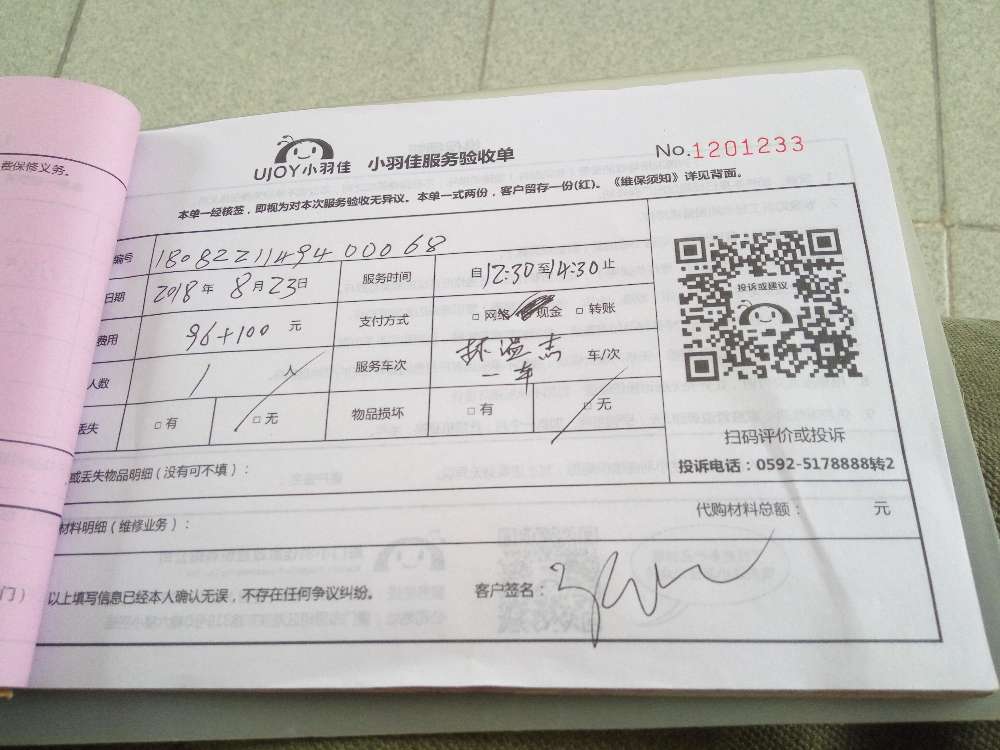 费保修义务。
UJOY小羽佳 小羽佳服务验收单 No.1201233
本单一经核签，即视为对本次服务验收无异议。本单一式两份，客户留存一份(红)。《维保须知》详见背面。
编号 180822114940 00 68
日期 2018年 8月23日 服务时间 自12:30至14:30止
费用 96+100 元 支付方式 □网络 现金 □转账
人数 1 人 服务车次 车/次
丢失 □有 □无 物品损坏 □有 □无
投诉或建议
扫码评价或投诉
投诉电话：0592-5178888转2
或丢失物品明细(没有可不填)：
材料明细(维修业务)： 代购材料总额： 元
门） 以上填写信息已经本人确认无误，不存在任何争议纠纷。 客户签名：